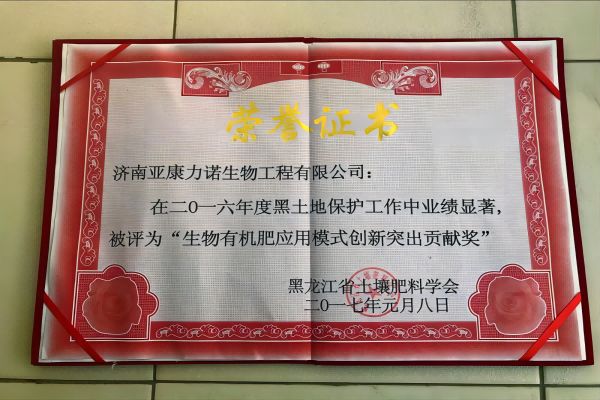 荣誉证书
济南亚康力诺生物工程有限公司：
在二〇一六年度黑土地保护工作中业绩显著，
被评为“生物有机肥应用模式创新突出贡献奖”
黑龙江省土壤肥料学会
二〇一七年元月八日